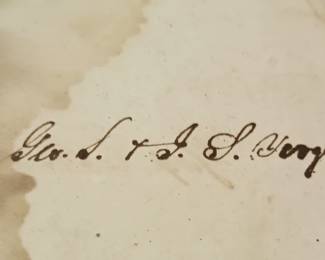 Geo. S. & J. S. Yerg